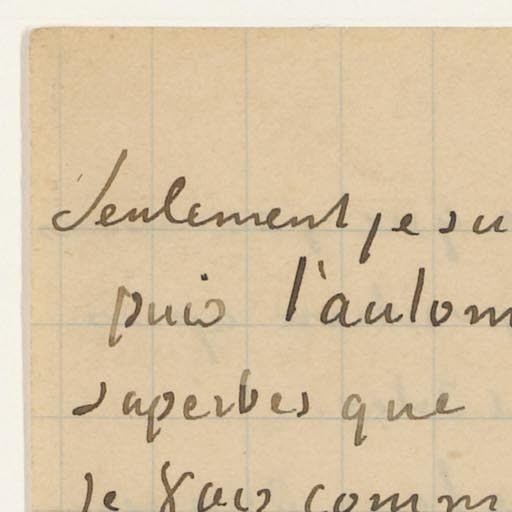 Seulement je su
puis l'autom
superbes que
je vais comm